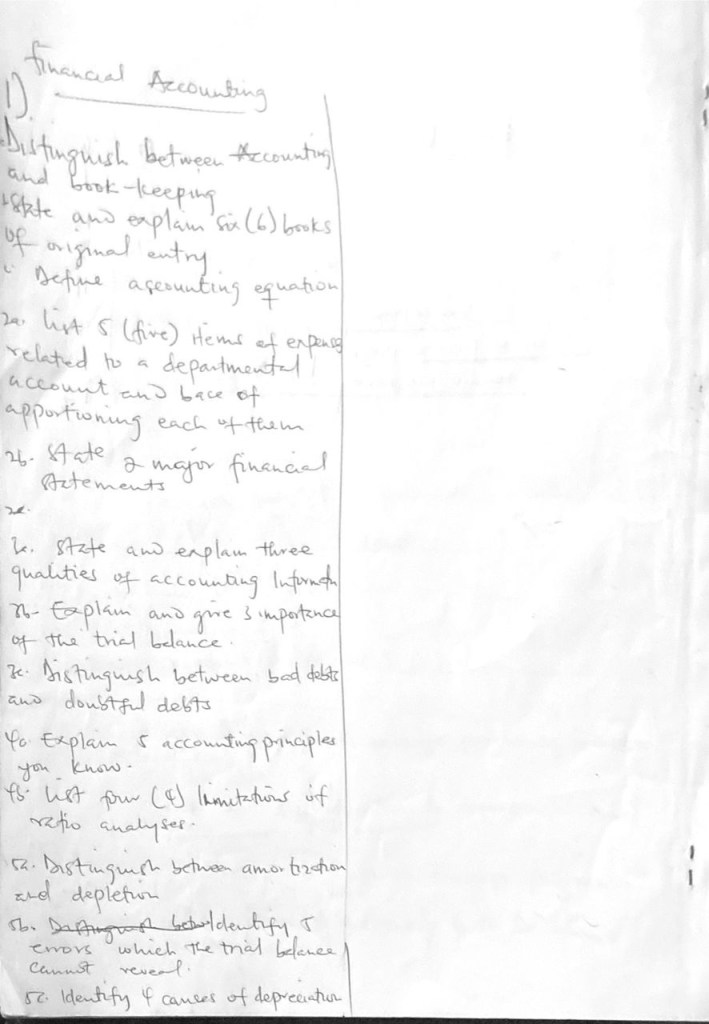 Financial Accounting
1).
Distinguish between Accounting
and book-keeping
State and explain six (6) books
of original entry
Define accounting equation
2a. List 5 (five) items of expens
related to a departmental
account and bace of
apportioning each of them
2b. State 2 major financial
statements
2c.
3a. State and explain three
qualities of accounting Informatn
3b- Explain and give 3 importance
of the trial balance.
3c. Distinguish between bad debts
and doubtful debts
4a Explain 5 accounting principles
you know.
4b. List four (4) limitations of
ratio analyses.
5a. Distinguish between amortization
and depletion
5b. Identify 5
errors which the trial balance
cannot reveal.
5c. Identify 4 causes of depreciation